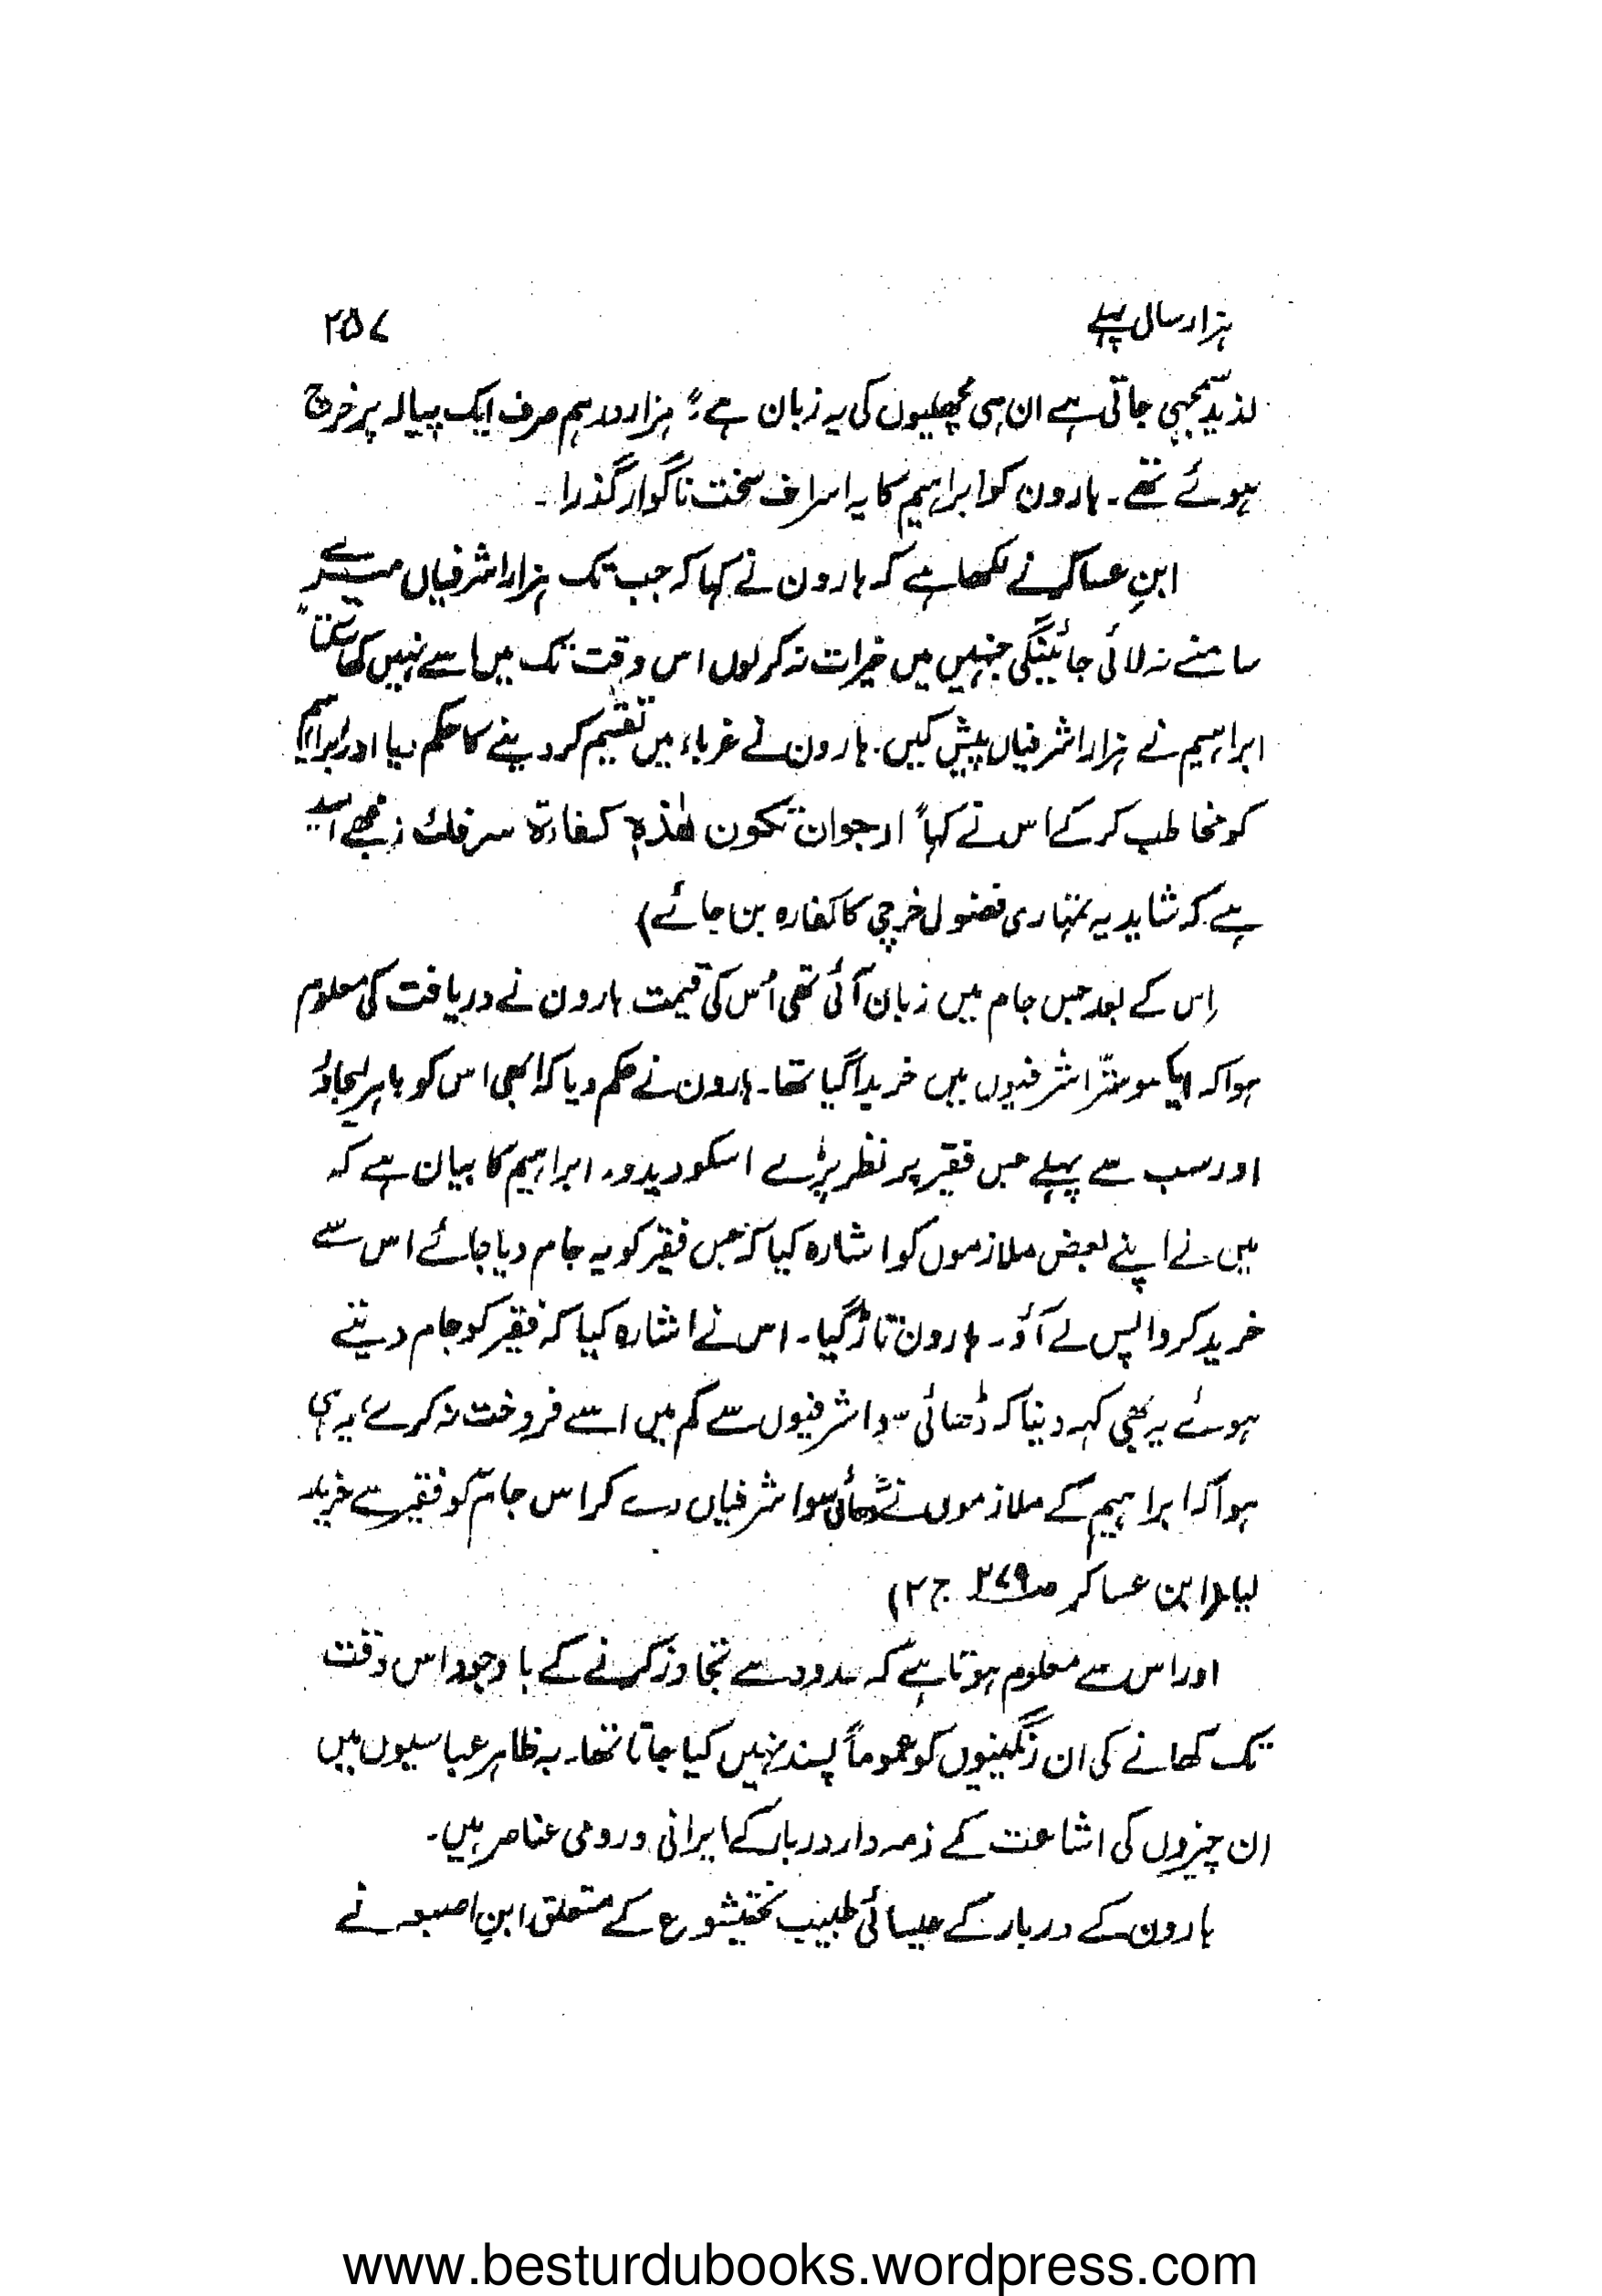 ہزار سال پہلے ۲۵۷
لذیذ سمجھی جاتی ہے ان ہی مچھلیوں کی یہ زبان ہے؛ ہزار درہم صرف ایک پیالہ پر خرچ
ہوئے تھے۔ ہارون کو ابراہیم کا یہ اسراف سخت ناگوار گذرا۔
ابنِ عساکر نے لکھا ہے کہ ہارون نے کہا کہ جب تک ہزار اشرفیاں میرے
سامنے نہ لائی جائینگی جنہیں میں خیرات نہ کرلوں اس وقت تک میں اسے نہیں کھا سکتا"
ابراہیم نے ہزار اشرفیاں پیش کیں۔ ہارون نے غرباء میں تقسیم کر دینے کا حکم دیا اور ابراہیم
کو مخاطب کر کے اس نے کہا" ارجوان تکون ھٰذہ کفارۃ سرفک (مجھے امید
ہے کہ شاید یہ تمہاری فضول خرچی کا کفارہ بن جائے)
اِس کے بعد جس جام میں زبان آئی تھی اُس کی قیمت ہارون نے دریافت کی معلوم
ہوا کہ ایک سو ستّر اشرفیوں میں خریدا گیا تھا۔ ہارون نے حکم دیا کہ ابھی اس کو باہر لیجاؤ
اور سب سے پہلے جس فقیر پر نظر پڑے اسکو دیدو۔ ابراہیم کا بیان ہے کہ
میں نے اپنے بعض ملازموں کو اشارہ کیا کہ جس فقیر کو یہ جام دیا جائے اس سے
خرید کر واپس لے آؤ۔ ہارون تاڑ گیا۔ اس نے اشارہ کیا کہ فقیر کو جام دیتے
ہوئے یہ بھی کہہ دینا کہ ڈھائی سو اشرفیوں سے کم میں اسے فروخت نہ کرے؛ یہ ہی
ہوا کہ ابراہیم کے ملازموں نے ڈھائی سو اشرفیاں دے کر اس جام کو فقیر سے خرید
لیا۔(ابن عساکر صـ ۲۷۹ ج ۲)
اور اس سے معلوم ہوتا ہے کہ حدود سے تجاوز کرنے کے باوجود اس وقت
تک کھانے کی ان رنگینیوں کو عموماً پسند نہیں کیا جاتا تھا۔ بہ ظاہر عباسیوں میں
ان چیزوں کی اشاعت کے ذمہ دار دربار کے ایرانی و رومی عناصر ہیں۔
ہارون کے دربار کے عیسائی طبیب بختیشوع کے متعلق ابنِ اصیبعہ نے
www.besturdubooks.wordpress.com